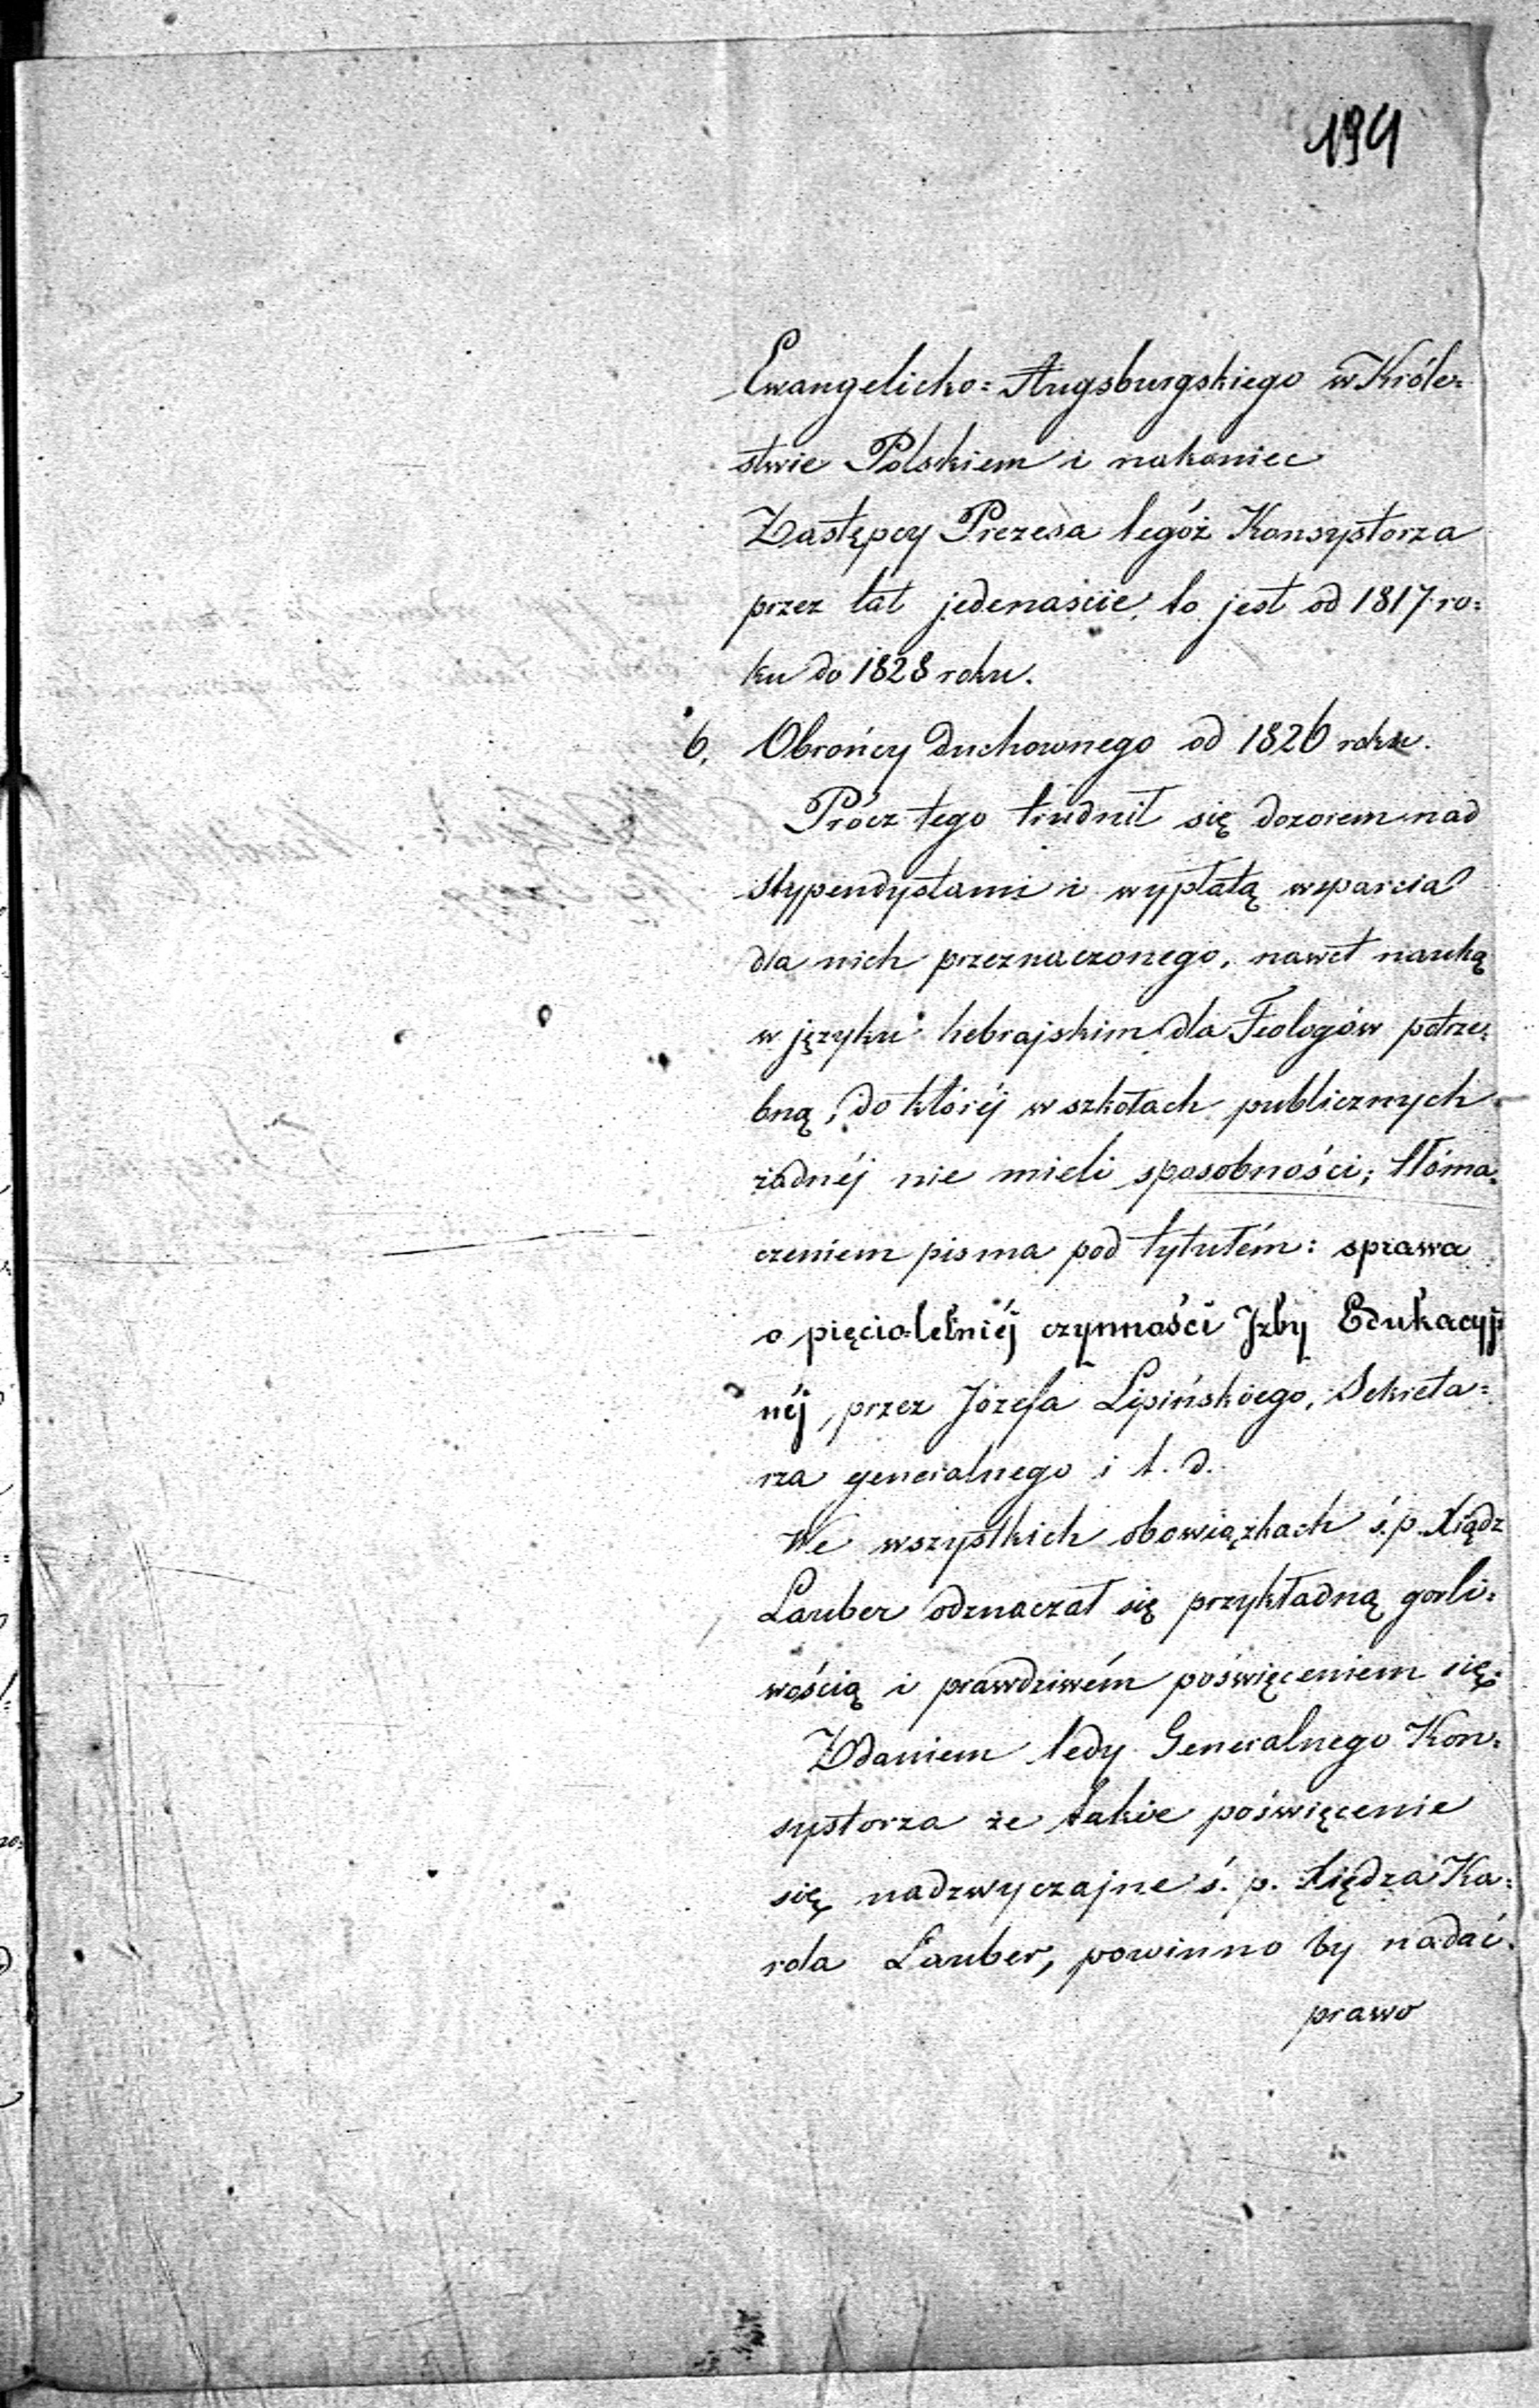 194
Ewangelicko=Augsburgskiego w Króle=
stwie Polskiem i nakoniec
Zastępcy Prezesa tegóż Konsystorza
przez lat jedenaście, to jest od 1817 ro=
ku do 1828 roku.
6, Obrońcy duchownego od 1826 roku.
Prócz tego trudnił się dozorem nad
stypendystami i wypłatą wsparcia
dla nich przeznaczonego, nawet nauką
w języku hebrajskim dla Teologów potrze=
bną, do któréj w szkołach publicznych
żadnéj nie mieli sposobności; tłóma=
czeniem pisma pod tytułém: sprawa
o pięcio=letniéj czynności Izby Edukacyj=
néj, przez Józefa Lipińskiego, Sekreta=
rza generalnego i t. d.
We wszystkich obowiązkach ś.p. Xiądz
Lauber odznaczał się przykładną gorli=
wością i prawdziwém poświęceniem się.
Zdaniem tedy Generalnego Kon=
systorza że takie poświęcenie
się nadzwyczajne ś. p. Xiędza Ka=
rola Lauber, powinno by nadać
prawo